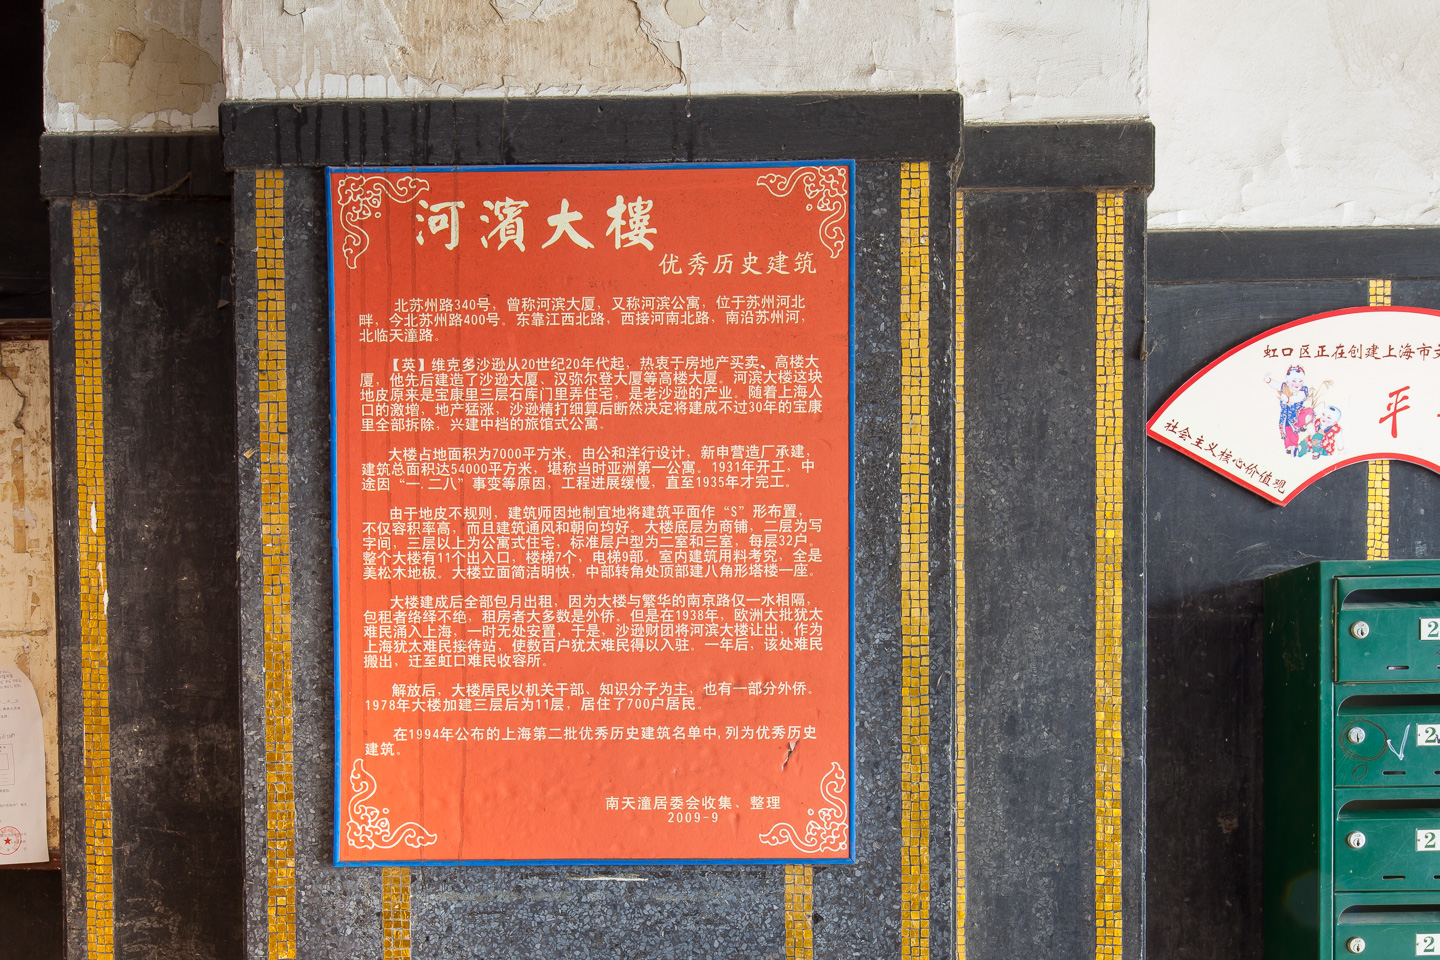 河濱大樓
优秀历史建筑
北苏州路340号，曾称河滨大厦，又称河滨公寓，位于苏州河北
畔，今北苏州路400号。东靠江西北路，西接河南北路，南沿苏州河，
北临天潼路。
【英】维克多沙逊从20世纪20年代起，热衷于房地产买卖、高楼大
厦，他先后建造了沙逊大厦、汉弥尔登大厦等高楼大厦。河滨大楼这块
地皮原来是宝康里三层石库门里弄住宅，是老沙逊的产业。随着上海人
口的激增，地产猛涨，沙逊精打细算后断然决定将建成不过30年的宝康
里全部拆除，兴建中档的旅馆式公寓。
大楼占地面积为7000平方米，由公和洋行设计，新申营造厂承建，
建筑总面积达54000平方米，堪称当时亚洲第一公寓。1931年开工，中
途因“一.二八”事变等原因，工程进展缓慢，直至1935年才完工。
由于地皮不规则，建筑师因地制宜地将建筑平面作“S”形布置，
不仅容积率高，而且建筑通风和朝向均好。大楼底层为商铺，二层为写
字间，三层以上为公寓式住宅，标准层户型为二室和三室，每层32户。
整个大楼有11个出入口，楼梯7个，电梯9部。室内建筑用料考究，全是
美松木地板。大楼立面简洁明快，中部转角处顶部建八角形塔楼一座。
大楼建成后全部包月出租，因为大楼与繁华的南京路仅一水相隔，
包租者络绎不绝，租房者大多数是外侨。但是在1938年，欧洲大批犹太
难民涌入上海，一时无处安置，于是，沙逊财团将河滨大楼让出，作为
上海犹太难民接待站，使数百户犹太难民得以入驻。一年后，该处难民
搬出，迁至虹口难民收容所。
解放后，大楼居民以机关干部、知识分子为主，也有一部分外侨。
1978年大楼加建三层后为11层，居住了700户居民。
在1994年公布的上海第二批优秀历史建筑名单中,列为优秀历史
建筑。
南天潼居委会收集、整理
2009-9
虹口区正在创建上海市文
平
社会主义核心价值观
2
2
2
2